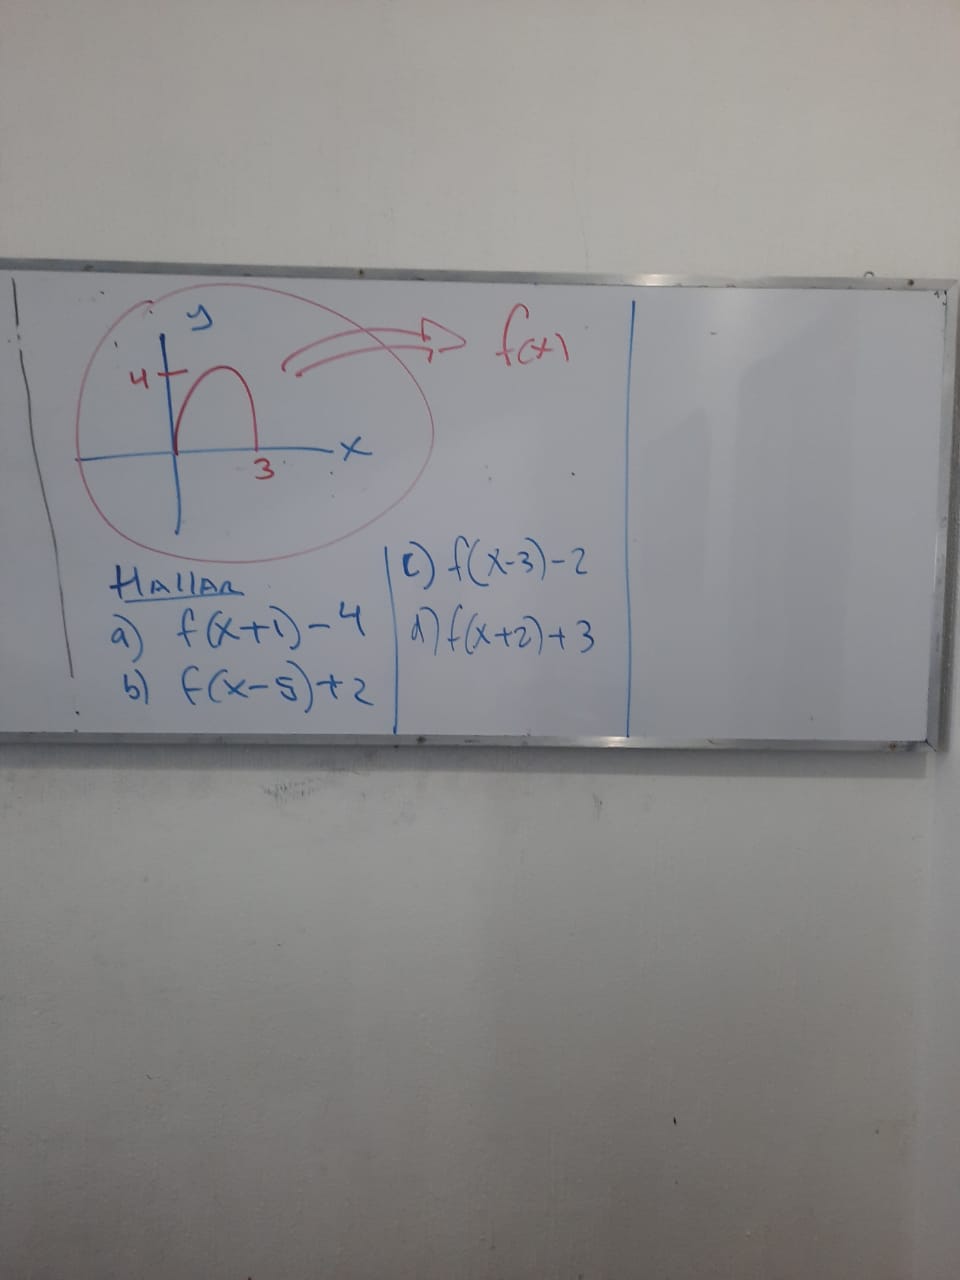 y
4
f(x)
x
3
HAllAR
a) f(x+1)-4
b) f(x-5)+2
c) f(x-3)-2
d) f(x+2)+3